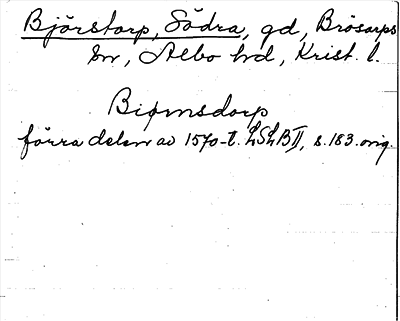 Björstorp, Södra, gd, Brösarps
sn, Albo hd, Krist. l.
Biørnsdorp
förra delen av 1570-t. LSLB II, s. 183. orig.